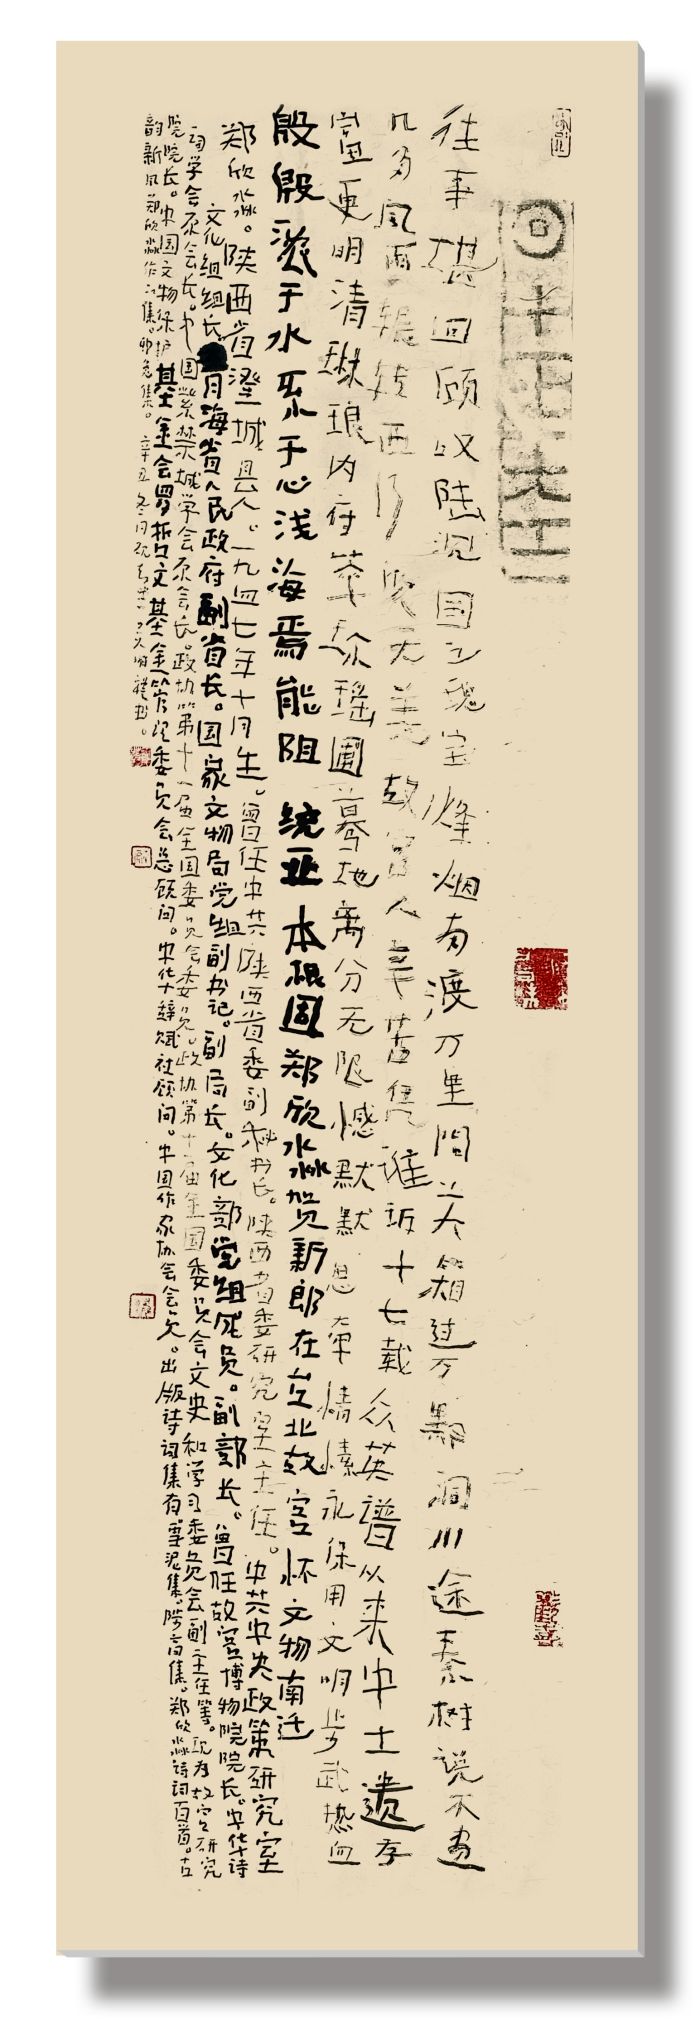 往事堪回顾叹陆沉国之瑰宝烽烟南渡万里间关箱过万黔洞川途秦树说不尽
几多风雨辗转西行皆无恙故宫人辛苦凭谁诉十七载众英谱从来中土遗存
富更明清琳琅内府萃珍瑶圃蓦地离分无限憾默默思牵情愫永保用文明步武热血
殷殷浓于水系于心浅海焉能阻统业本根固郑欣淼贺新郎在台北故宫怀文物南迁
郑欣淼。陕西省澄城县人。一九四七年十月生。曾任中共陕西省委副秘书长。陕西省委研究室主任。中共中央政策研究室
文化组组长。青海省人民政府副省长。国家文物局党组副书记。副局长。文化部党组成员。副部长。曾任故宫博物院院长。中华诗
词学会原会长。中国紫禁城学会原会长。政协第十一届全国委员会委员。政协第十一届全国委员会文史和学习委员会副主任等。现为故宫研究
院院长。中国文物保护基金会罗哲文基金管理委员会总顾问。中华辞赋社顾问。中国作家协会会员。出版诗词集有雪泥集。陟高集。郑欣淼诗词百首。古
韵新风郑欣淼作品集。卯兔集。辛丑冬月书。